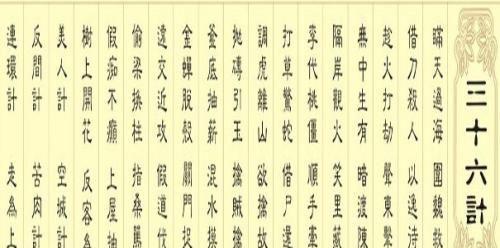 三十六計
瞞天過海 圍魏救
借刀殺人 以逸待
趁火打劫 聲東擊
無中生有 暗渡陳
隔岸觀火 笑裏藏
李代桃僵 順手牽
打草驚蛇 借尸還
調虎離山 欲擒故
拋磚引玉 擒賊擒
釜底抽薪 混水摸
金蟬脫殼 關門捉
遠交近攻 假道伐
偷梁換柱 指桑罵
假痴不癲 上屋抽
樹上開花 反客為
美人計 空城計
反間計 苦肉計
連環計 走為上